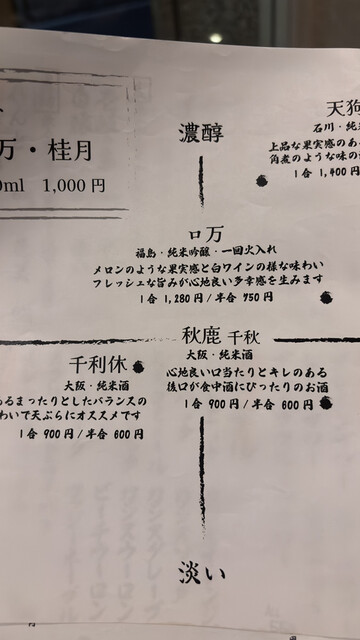 万・桂月
0ml 1,000円
濃醇
天狗
石川・純米
上品な果実感のあ
角煮のような味の
1合 1,400円
ロ万
福島・純米吟醸・一回火入れ
メロンのような果実感と白ワインの様な味わい
フレッシュな旨みが心地良い多幸感を生みます
1合 1,280円/半合 750円
秋鹿 千秋
大阪・純米酒
心地良い口当たりとキレのある
後口が食中酒にぴったりのお酒
1合 900円/半合 600円
千利休
大阪・純米酒
るまったりとしたバランスの
わいで天ぷらにオススメです
1合 900円/半合 600円
淡い